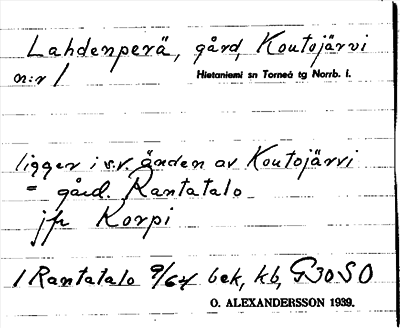 Lahdenperä, gård, Koutojärvi
n:r 1 Hietaniemi sn Torneå tg Norrb. l.
ligger i s.v. änden av Koutojärvi
= gård. Rantatalo
jfr Korpi
1 Rantatalo 9/64 bek, kb, G30SO
O. ALEXANDERSSON 1939.